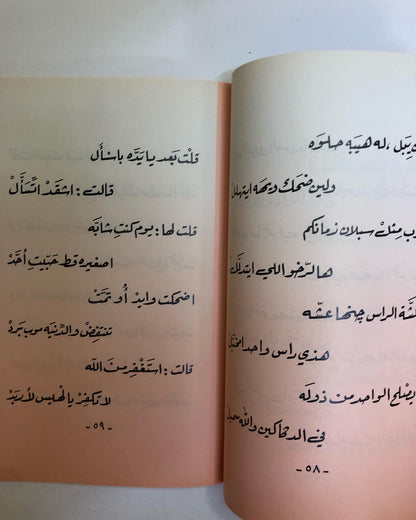 يَبَل ، له هيبَه حلوَه
ولين ضحك ويهَه ايتهلل
مثل سبلان زمانكم
ها الرّخو اللي ايتدلّك
الراس چنها عشّه
هذي راس واحد
يصْلح الواحد من ذولَه
في الدكاكين والله
- ٥٨ -
قلْت بَعد يا يَدّه باسْأَل
قالت : اشقَدْ اتّسَأَلْ
قلت لها : يوم كنتِ شابّه
اصغيره قط حَبّيتِ أحَدْ
اضحكت وايدْ أُو تَمّتْ
تنتفِضْ والدّنيَه موب بَردْ
قالت : اسْتَغْفِر منَ اللّه
لا تكفِرْ يا لخليس لأربَدْ
- ٥٩ -